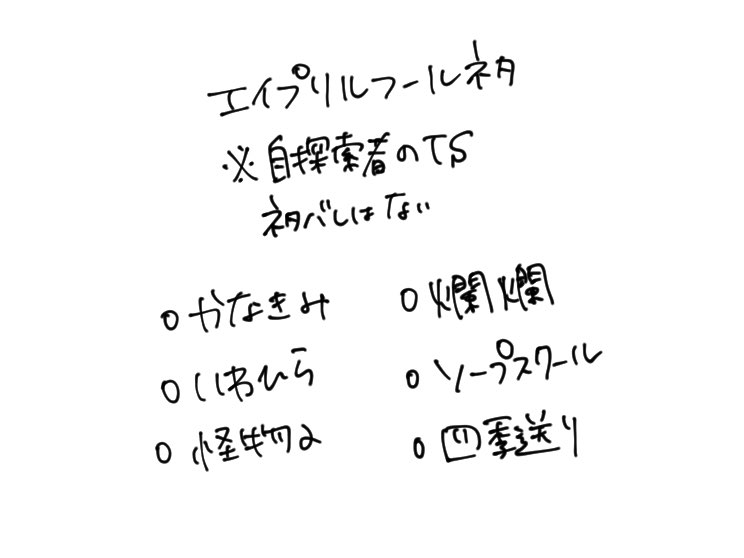 エイプリルフールネタ
※自探索者のTS
ネタバレはない
○かなきみ
○いわひら
○怪物2
○爛爛
○ソープスクール
○四季送り